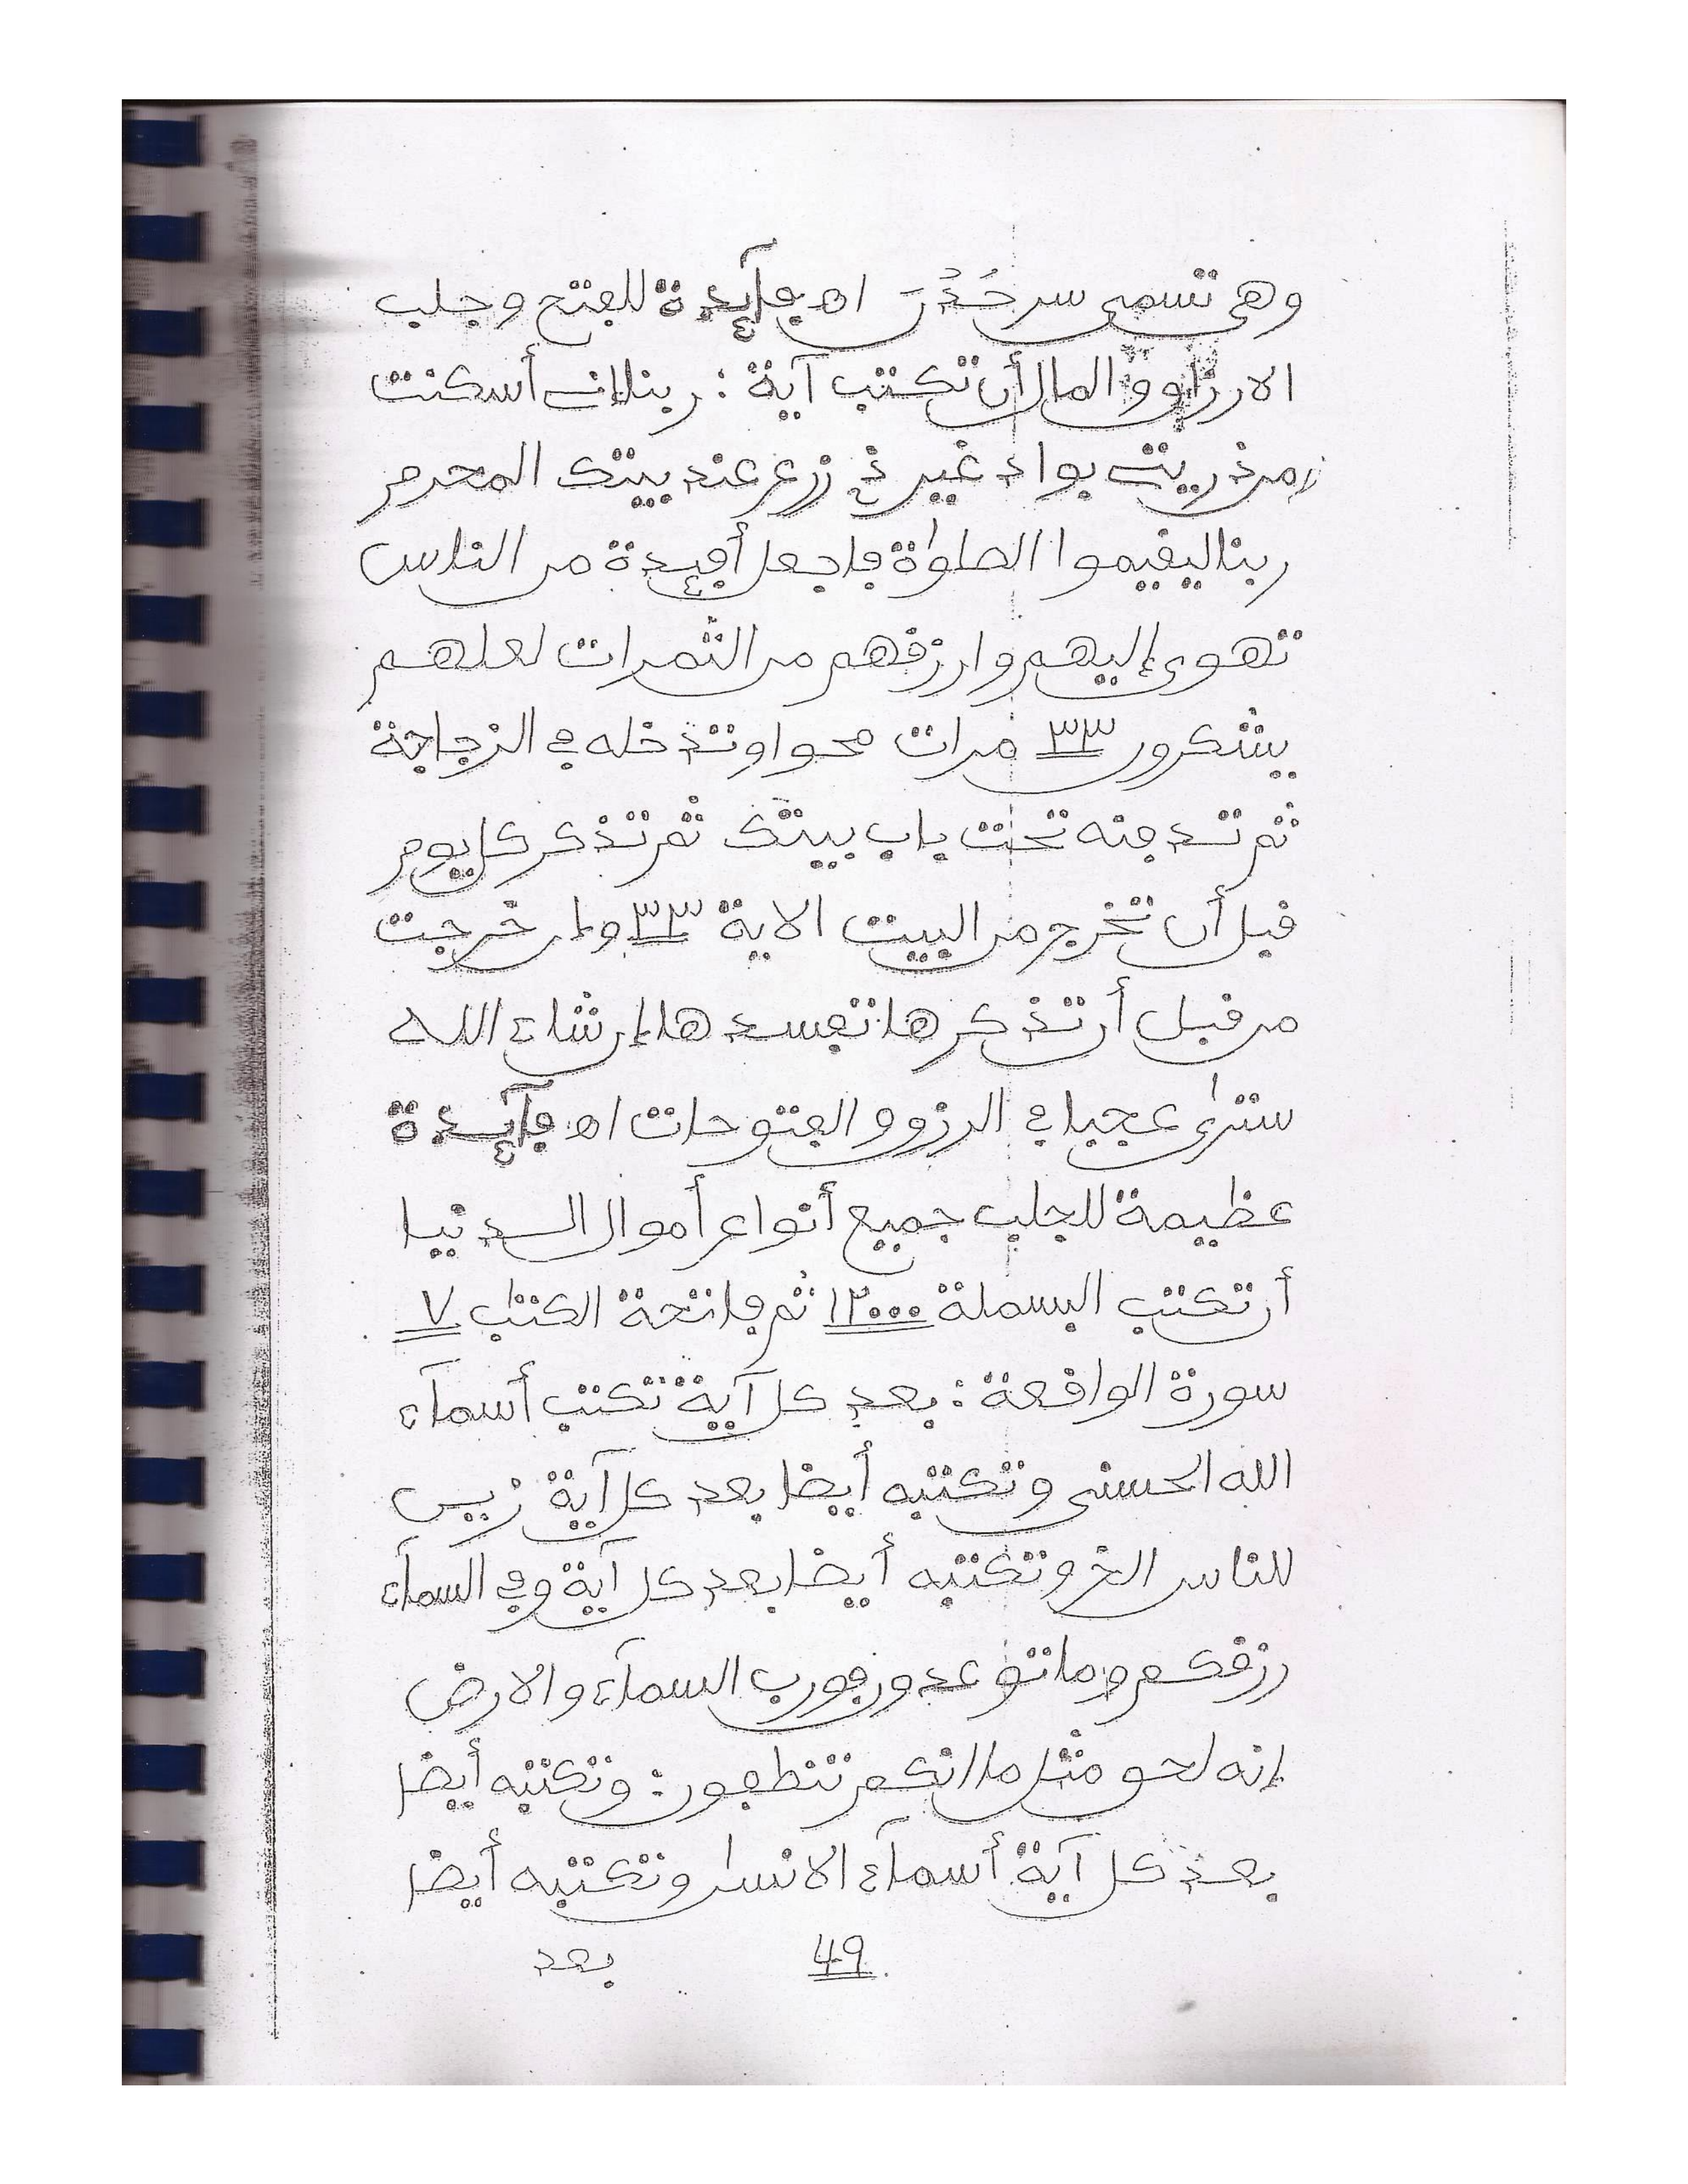 وهي تسمى سر حُدُرَ اه فآئدة للفتح وجلب
الارزاق والمال أن تكتب آية : ربنا إني أسكنت
من ذريتي بواد غير ذي زرع عند بيتك المحرم
ربنا ليقيموا الصلوٰة فاجعل أفئدة من الناس
تهوي إليهم وارزقهم من الثمرات لعلهم
يشكرون ٣٣ مرات محوا وتدخله في الزجاجة
ثم تدفنه تحت باب بيتك ثم تذكر كل يوم
قبل أن تخرج من البيت الاية ٣٣ وإن خرجت
من قبل أن تذكرها تفسدها إن شاء الله
سترى عجبا في الرزق والفتوحات اه فآئدة
عظيمة للجلب جميع أنواع أموال الدنيا
أن تكتب البسملة ١٢٠٠٠ ثم فاتحة الكتٰب ٧
سورة الواقعة : بعد كل آية تكتب أسمآء
الله الحسنى وتكتبه أيضا بعد كل آية زين
للناس الخ وتكتبه أيضا بعد كل آية وفي السمآء
رزقكم وما توعدون فورب السمآء والارض
إنه لحق مثل ما انكم تنطقون : وتكتبه أيضا
بعد كل آية أسمآء الانسان وتكتبه أيضا
49 بعد